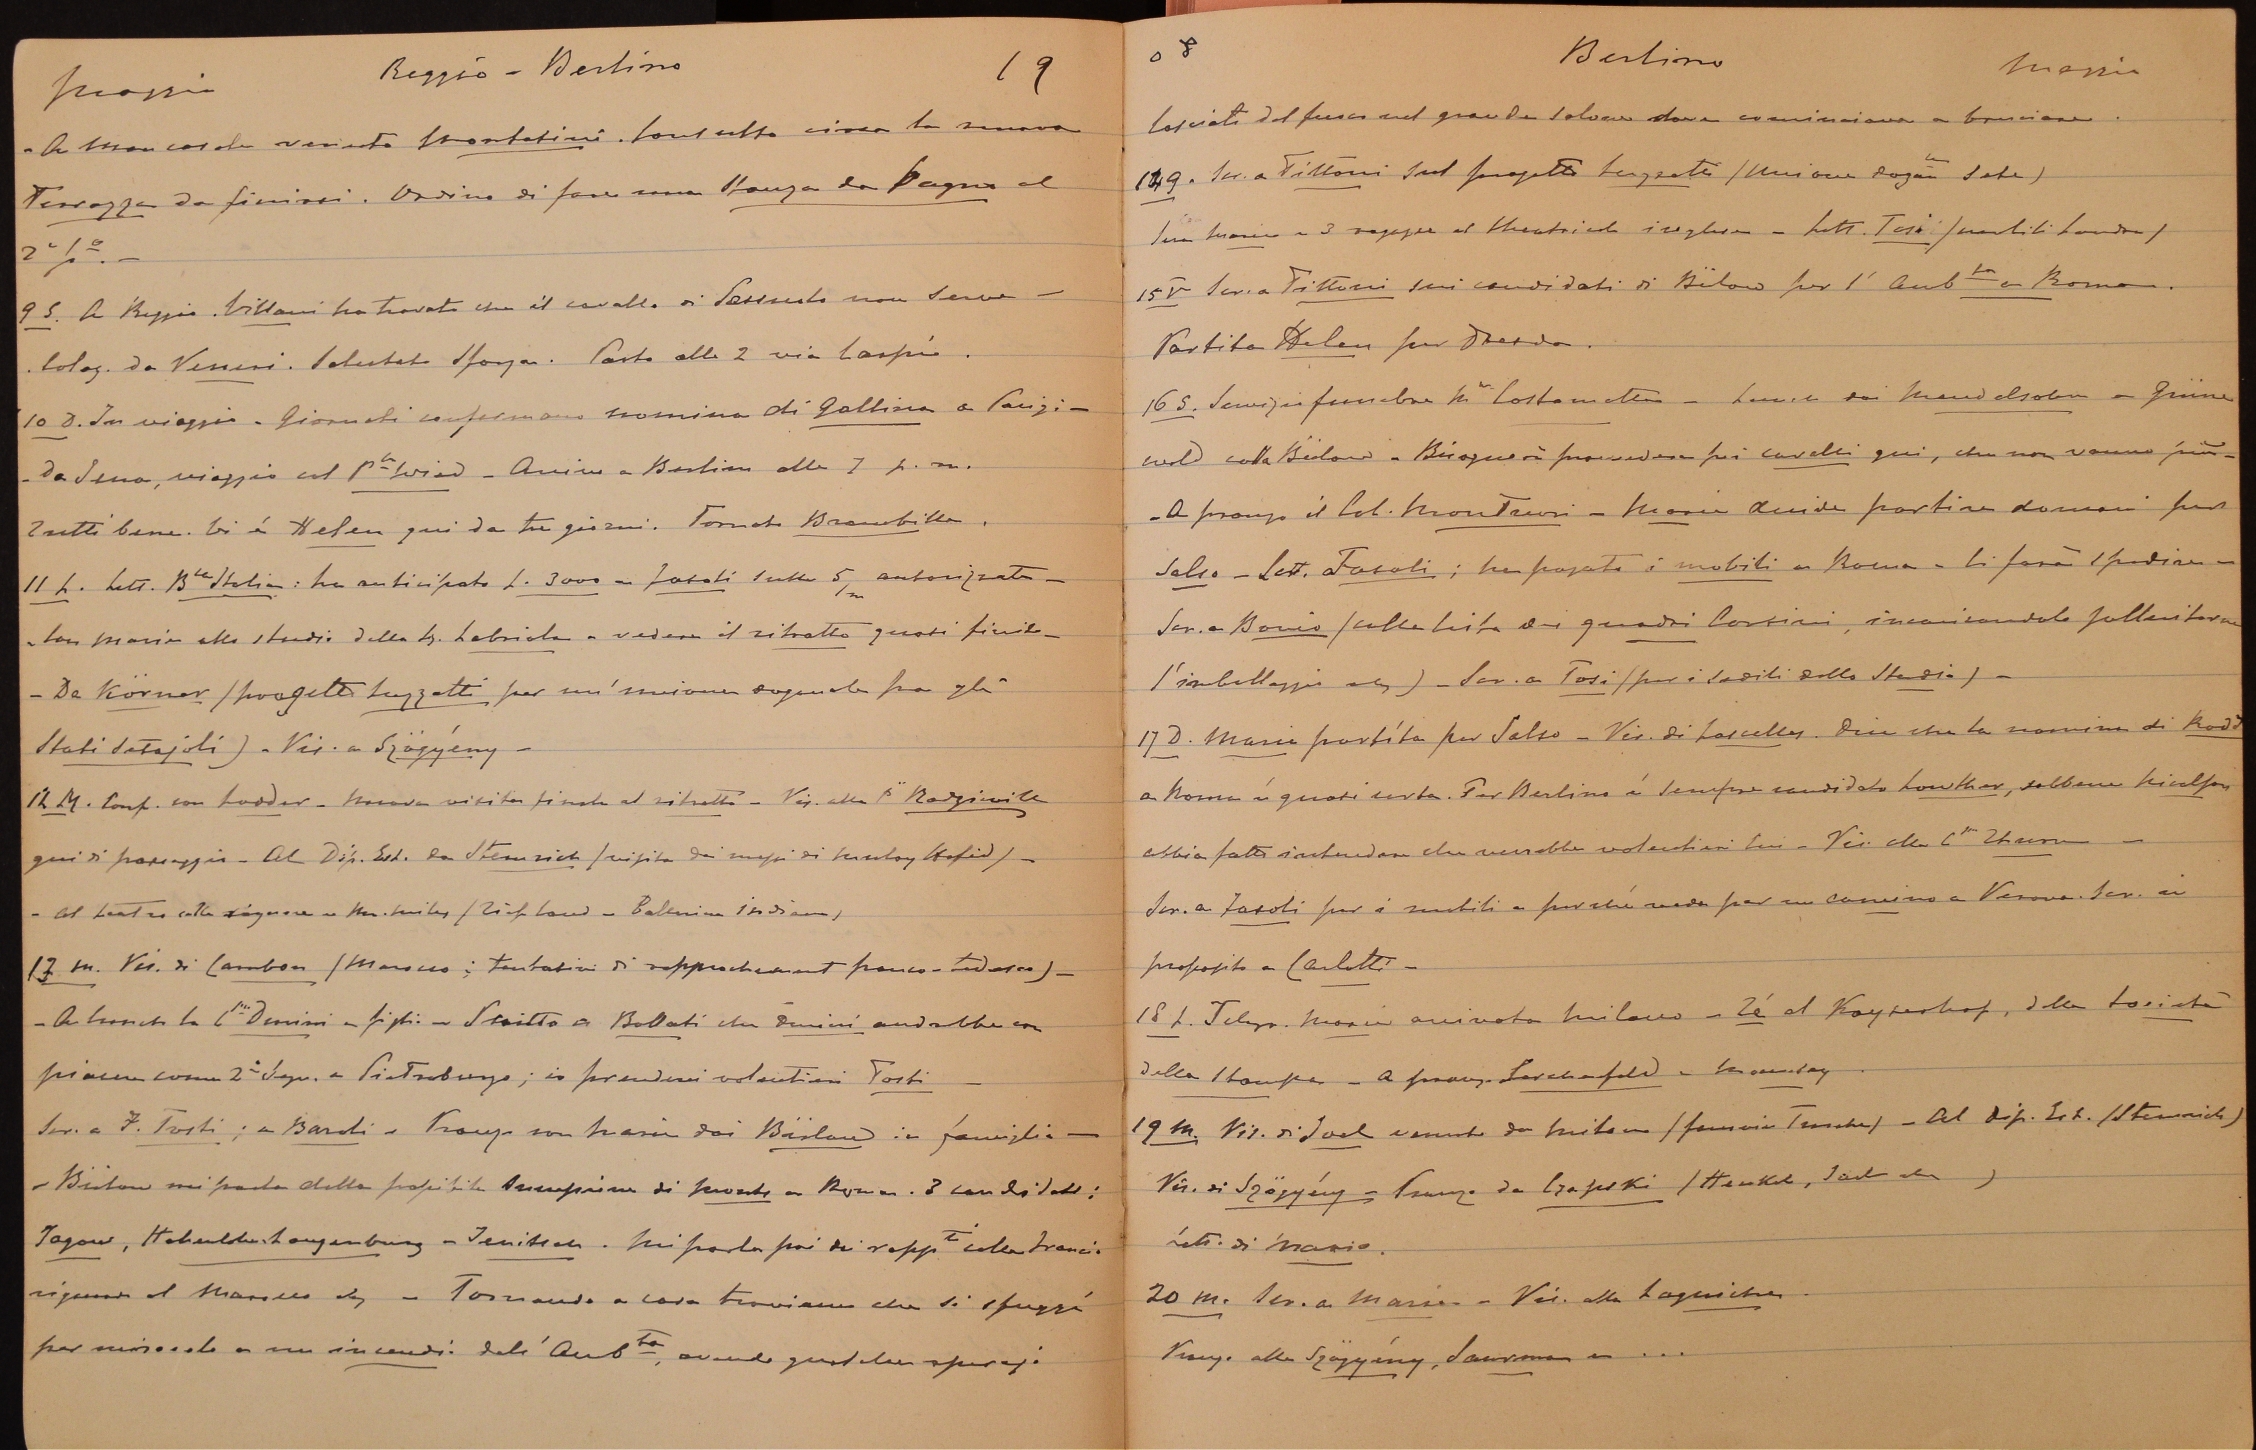 Maggio Reggio - Berlino 19
- A Mancasale venuto Montasini. Consulto circa la nuova
Terrazza da finirsi. Ordino di fare una Stanza da Bagno al
2° p.° -
9 S. A Reggio. Villani ha trovato che il cavallo di Sassuolo non serve -
. Colaz. da Veneri. Salutato Sforza. Parto alle 2 via Carpi.
10 D. In viaggio - Giornali confermano nomina di Gallina a Parigi -
- Da Jena, viaggio col P.pe Wied - Arrivo a Berlino alle 7 p. m.
Tutti bene. Vi è Helen qui da tre giorni. Tornato Brambilla.
11 L. Lett. B.ca Italia: ha anticipato L. 3000 a Fasoli sulle 5/m autorizzate -
- Con Maria allo studio della Sig. Labriola a vedere il ritratto quasi finito -
- Da Körner (progetto Luzzatti per un'unione doganale fra gli
Stati Setajoli) - Vis. a Szögyény -
12 M. Conf. con Lodder - Nuova visita finale al ritratto - Vis. alla P.ssa Radziwill
qui di passaggio - Al Dip. Est. da Stemrich (visita dei messi di Mulay Hafid) -
- Al teatro colle signore e Mr. Miles ( - Ballerina indiana)
13 M. Vis. di Cambon (Marocco; tentativi di rapprochement franco-tedesco) -
- A lunch la C.ssa Durini e figli - Scritto a Bollati che Durini andrebbe con
piacere come 2° Segr. a Pietroburgo; io prenderei volentieri Tosti -
Scr. a F. Tosti; a Baroli - Pranzo con Maria dai Bülow in famiglia -
- Bülow mi parla della possibile successione di Monts a Roma. 3 candidati:
Jagow, Hohenlohe-Langenburg e Jenisch. Mi parla poi dei rapp.ti colla Francia
riguardo al Marocco etc - Tornando a casa troviamo che si sfuggì
per miracolo a un incendio dell'Amb.ta, avendo qualche operajo
08 Berlino Maggio
lasciato del fuoco nel grande salone dove cominciava a bruciare.
14 G. Scr. a Tittoni sul progetto Luzzatti (Unione dogan.le Seta)
Con Maria e 3 ragazze al theatricals inglese - Lett. Tosi (mobili Londra)
15 V Scr. a Tittoni sui candidati di Bülow per l'Amb.ta a Roma.
Partita Helen per Dresda.
16 S. Servizio funebre M.se Costamotta - Lunch dai Mendelsohn a Grüne
wald colla Bülow - Bisognerà provvedere pei cavalli qui, che non vanno più -
- A pranzo il Col. Montuori - Maria decide partire domani per
Salso - Lett. Fasoli; ha pagato i mobili a Roma - li farà spedire -
Scr. a Bonio (colla lista dei quadri Corsini, incaricandolo sollecitarne
l'imballaggio etc) - Scr. a Tosi (per i sedili dello Studio) -
17 D. Maria partita per Salso - Vis. di Lascelles. Dice che la nomina di Rodd
a Roma è quasi certa. Per Berlino è sempre candidato Lowther, sebbene Nicolson
abbia fatto intendere che verrebbe volentieri lui - Vis. alla C.ssa Thurn -
Scr. a Fasoli per i mobili e perché veda per un camino a Verona. Scr. in
proposito a Carlotti -
18 L. Telegr. Maria arrivata Milano - Té al Kayserhof, della Società
della Stampa - A pranzo Lerchenfeld e
19 M. Vis. di Joel venuto da Milano (ferrovie Turche) - Al Dip. Est. (Stemrich)
Vis. di Szögyény - Pranzo da Czapski (Henkel, )
Lett. di Maria.
20 M. Scr. a Maria - Vis. alla Lagniche
Pranzo alla Szögyény, Saurma e ...